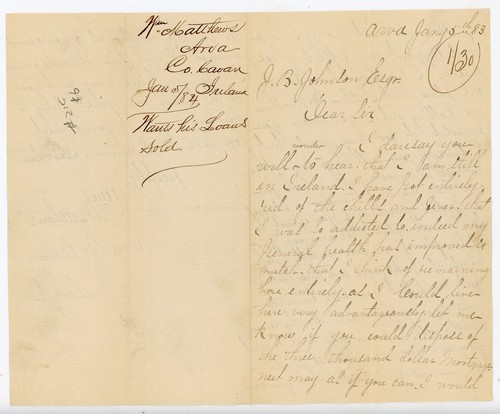 Wm Matthews
Arva
Co. Cavan
Jan 5/84 Ireland
Wants his Loans
Sold.
Arva Jany 5th 83
1/30
J. B. Johnson Esqr.
Dear Sir
I dare say you
wonder
will to hear that I am still
in Ireland. I have got entirely
rid of the chills and fever that
I was so addicted to indeed my
general health has improved so
much that I think of remaining
here entirely as I could live
here very advantageously let me
know if you could dispose of
the three thousand dollar Mortgage
next may as if you can I would